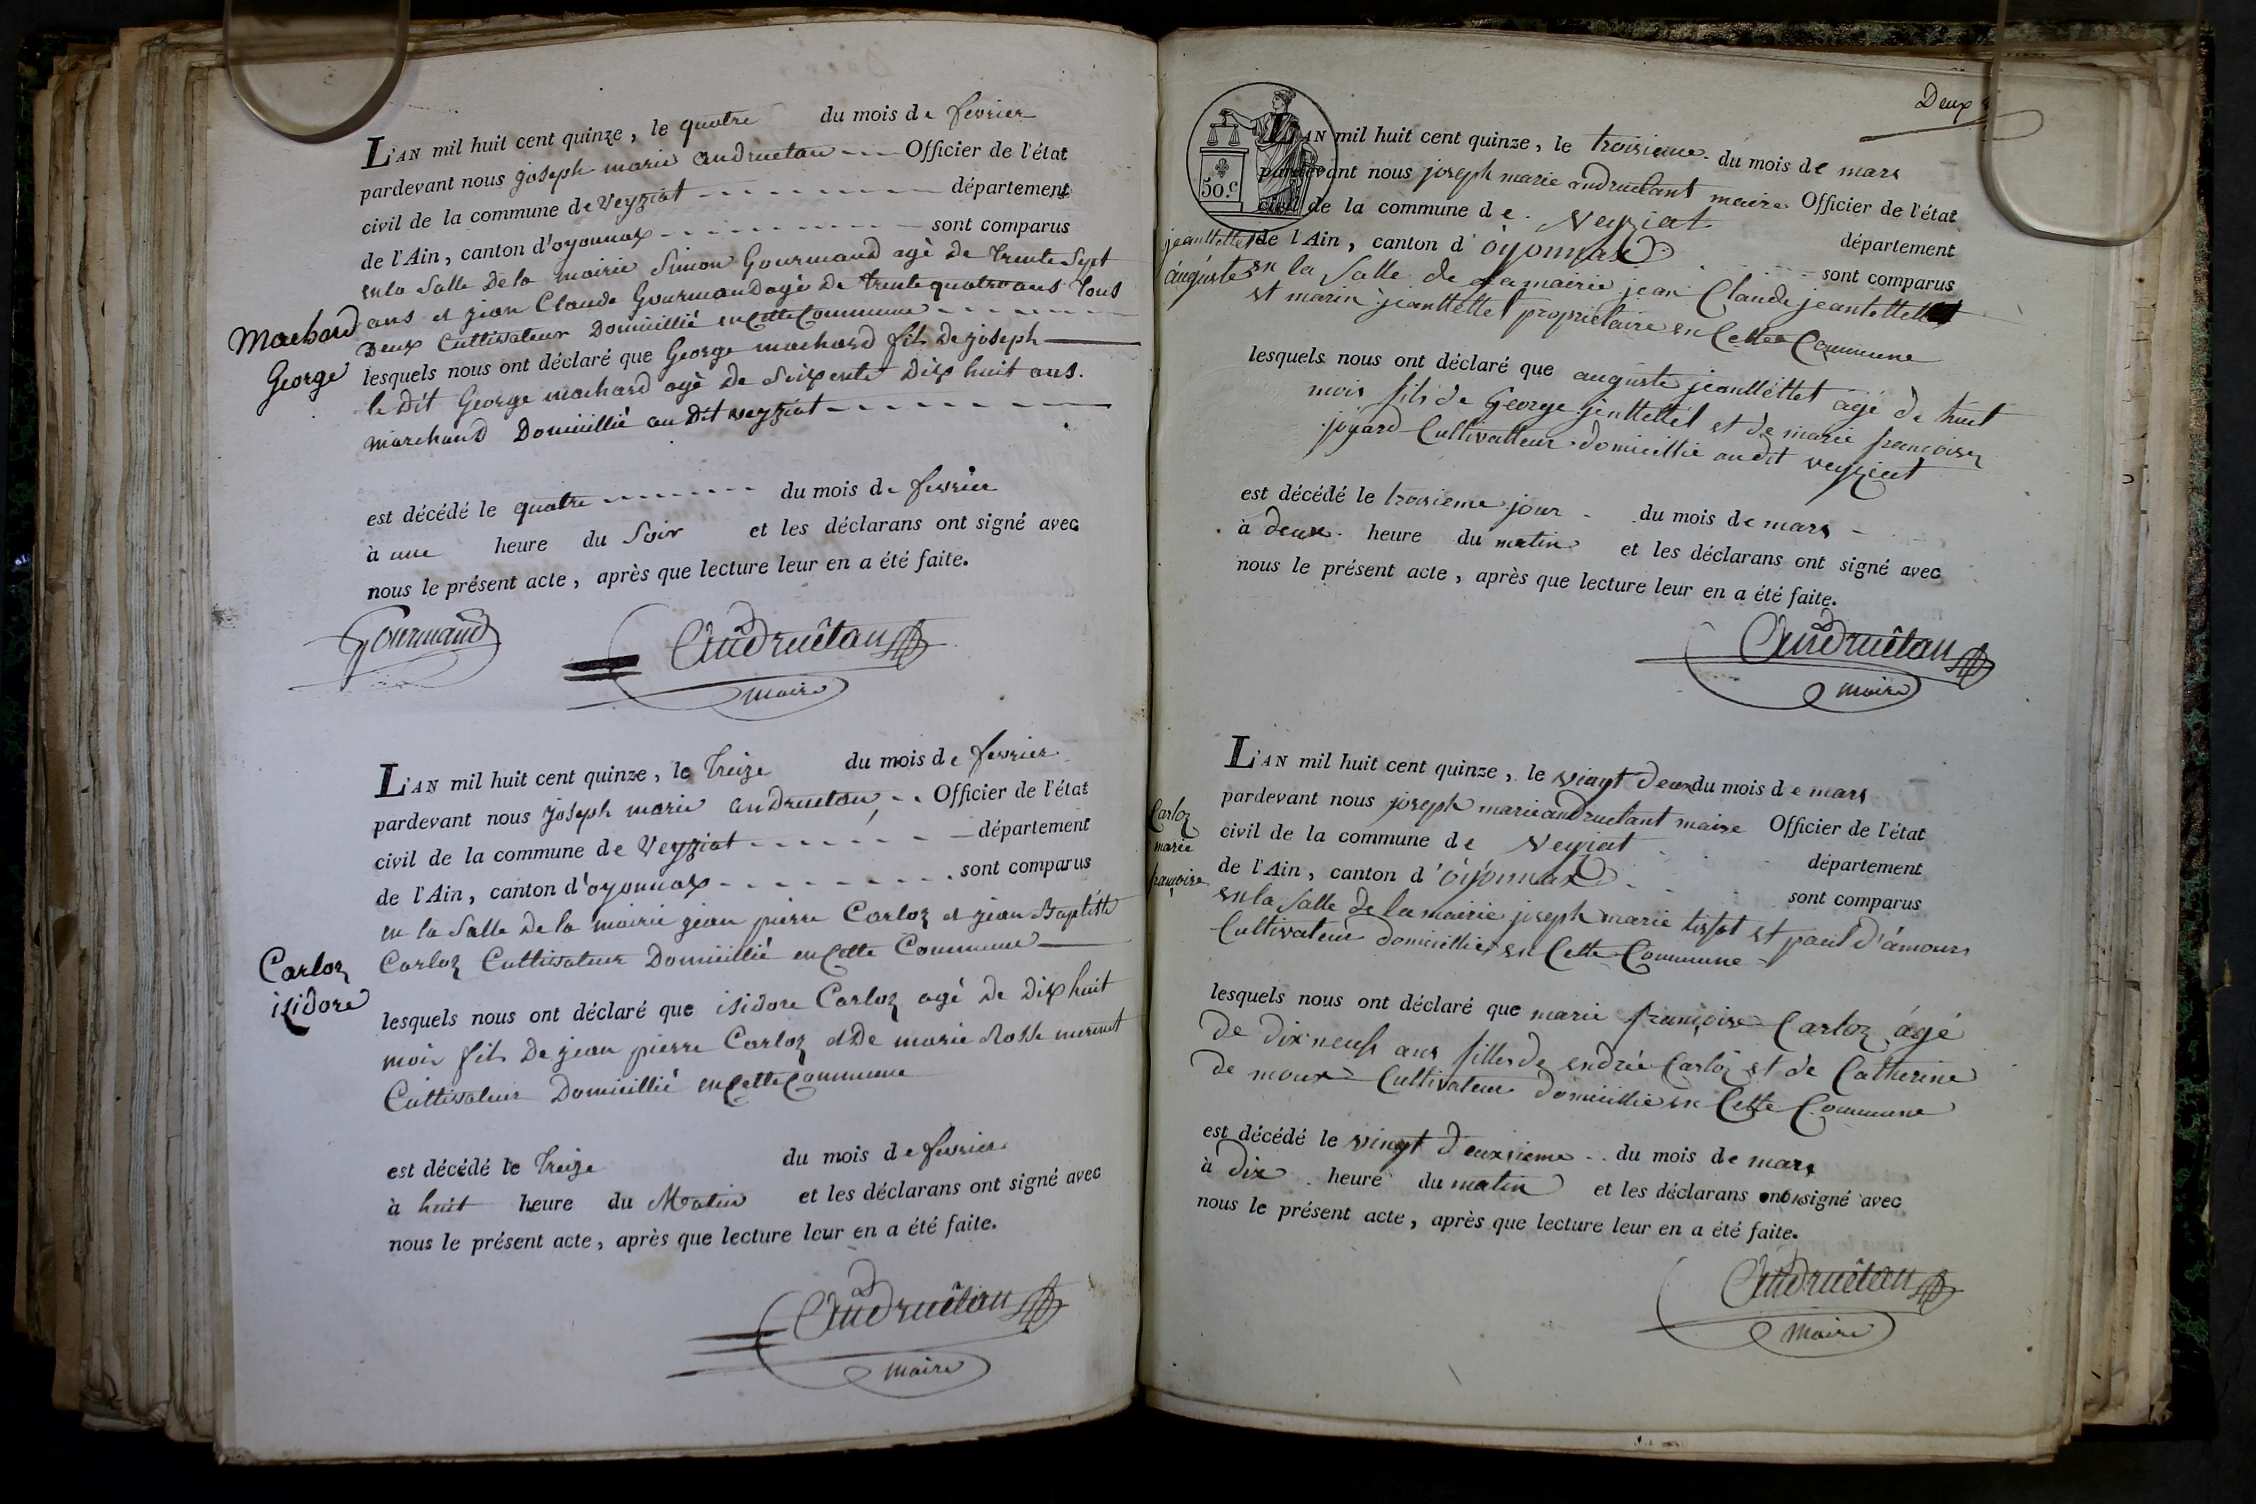 L'AN mil huit cent quinze, le quatre du mois de fevrier
pardevant nous joseph marie andruetan Officier de l'état
civil de la commune de Veyziat département
de l'Ain, canton d'oyonnax sont comparus
en la Salle De la mairie Simon Gourmand agé de Trente Sept
ans et jean Claude Gourmand agé de Trente quatre ans Tous
Machard
George
Deux Cultivateur Domicillié en Cette Commune
lesquels nous ont déclaré que George machard fils De joseph
le Dit George machard agé de Soixente Dix huit ans.
marchand Domicillié au Dit veyziat
est décédé le quatre du mois de fevrier
à une heure du Soir et les déclarans ont signé avec
nous le présent acte, après que lecture leur en a été faite.
Gourmand
Andruêtan
maire
L'AN mil huit cent quinze, le Treize du mois de fevrier
pardevant nous joseph marie andruetan Officier de l'état
civil de la commune de Veyziat département
de l'Ain, canton d'oyonnax sont comparus
en la Salle De la mairie jean pierre Carloz et jean Baptiste
Carloz Cultivateur Domicillié en Cette Commune
Carloz
isidore
lesquels nous ont déclaré que isidore Carloz agé de Dix huit
mois fils De jean pierre Carloz et De marie Rosse mermet
Cultivateur Domicillié en Cette Commune
est décédé le Treize du mois de fevrier
à huit heure du Matin et les déclarans ont signé avec
nous le présent acte, après que lecture leur en a été faite.
Andruêtan
maire
Deux
50.c
L'AN mil huit cent quinze, le troisieme du mois de mars
pardevant nous joseph marie andruetant maire Officier de l'état
civil de la commune de Veyziat département
de l'Ain, canton d'oyonnax sont comparus
jeanttettet
auguste
en la Salle de la mairie jean Claude jeantettet
et marin jeanttettet propriétaire en Cette Commune
lesquels nous ont déclaré que auguste jeanttettet agé de huit
mois fils de George jenttettet et de marie françoise
joyard Cultivatteur domicillié audit veyziat
est décédé le troisieme jour du mois de mars
à deux heure du matin et les déclarans ont signé avec
nous le présent acte, après que lecture leur en a été faite.
Andruêtan
maire
L'AN mil huit cent quinze, le vingt deux du mois de mars
pardevant nous joseph marie andruetant maire Officier de l'état
Carloz
marie
françoise
civil de la commune de Veyziat département
de l'Ain, canton d'oyonnax sont comparus
en la Salle de la mairie joseph marie tissot et paul d'amours
Cultivateur domicilliés en Cette Commune
lesquels nous ont déclaré que marie françoise Carloz agé
de dix neufs ans filles de endrée Carloz et de Catherine
de moux Cultivateur domicillié en Cette Commune
est décédé le vingt deuxsieme du mois de mars
à dix heure du matin et les déclarans ont signé avec
nous le présent acte, après que lecture leur en a été faite.
Andruêtan
maire